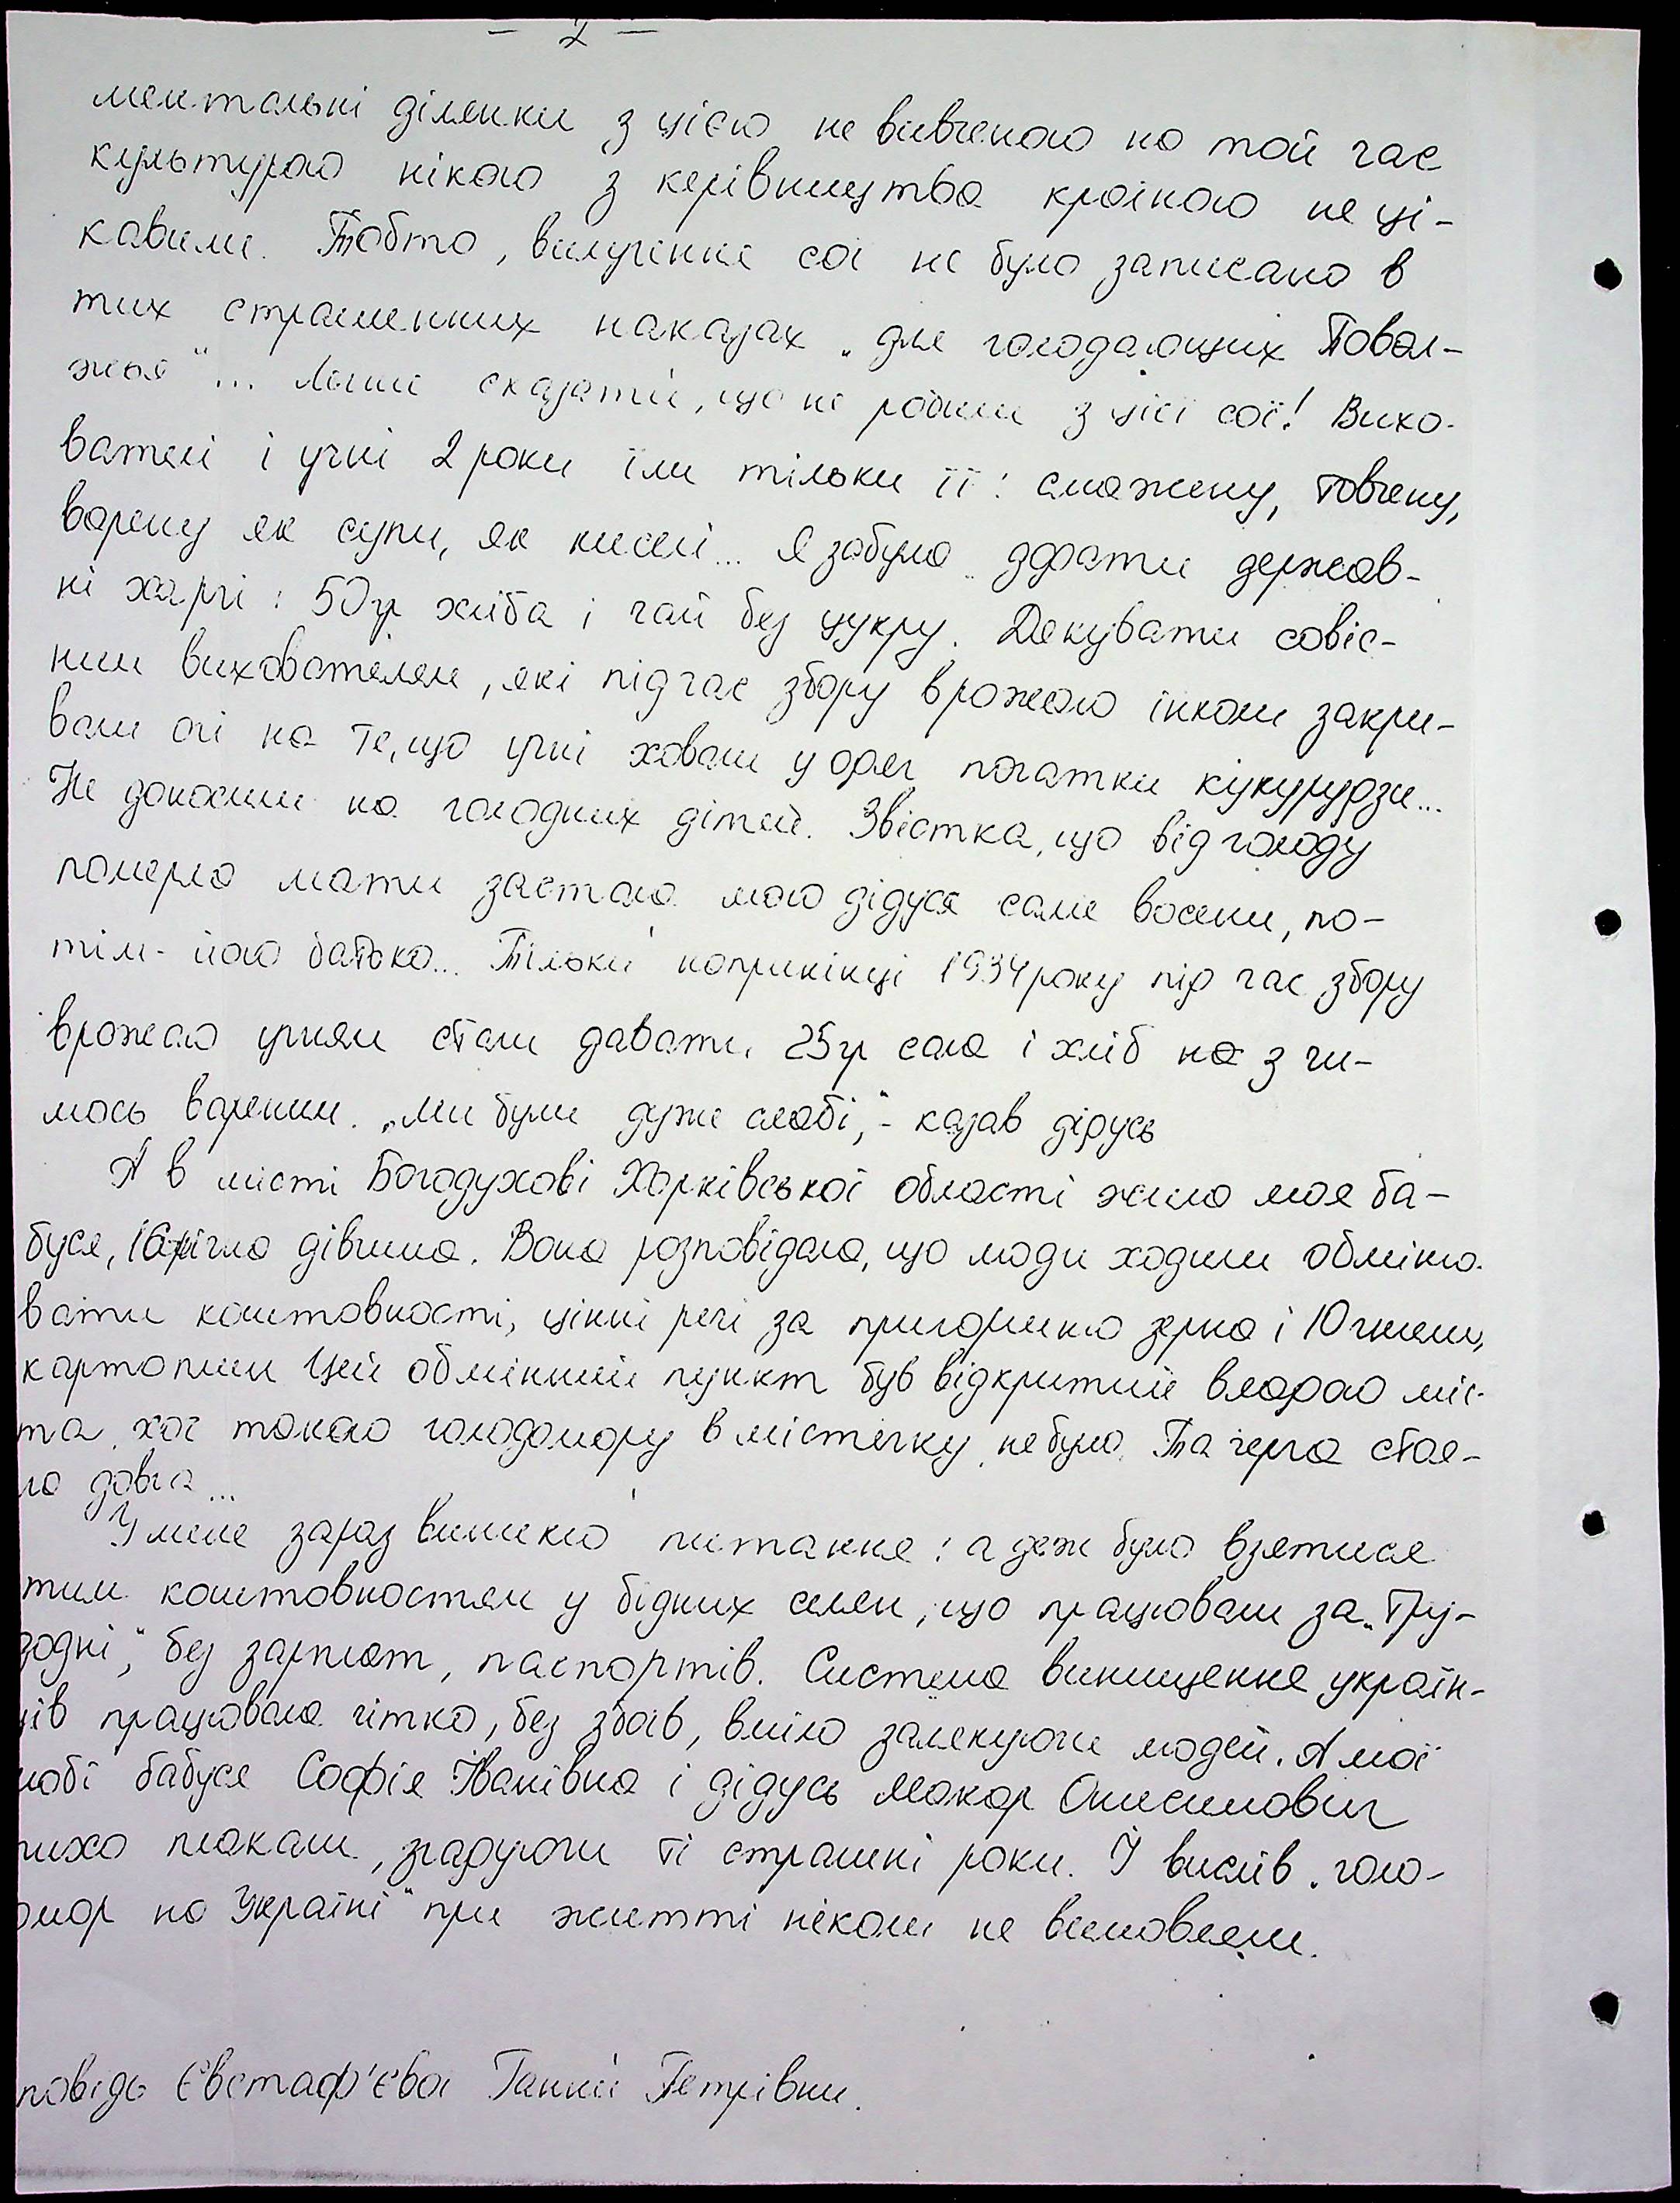 - 2 -
ментальні ділянки з цією не вивченою на той час
культурою нікого з керівництва країною не ці-
кавили. Тобто, вилучення сої не було записано в
тих страшенних наказах „для голодающих Повол-
жья"... Легше сказати, що не робили з цієї сої! Вихо-
вателі і учні 2 роки їли тільки її: смажену, товчену,
варену як супи, як киселі... Я забула згадати держав-
ні харчі: 50 гр хліба і чай без цукру. Дякувати совіс-
ним вихователям, які під час збору врожаю інколи закри-
вали очі на те, що учні ховали у одяг початки кукурудзи...
Не доносили на голодних дітей. Звістка, що від голоду
померла мати застала мого дідуся саме восени, по-
тім - його батько... Тільки наприкінці 1934 року під час збору
врожаю учням стали давати 25 гр сала і хліб на з чи-
мось вареним. „Ми були дуже слабі,"- казав дідусь
А в місті Богодухові Харківської області жила моя ба-
буся, 16 річна дівчина. Вона розповідала, що люди ходили обміню-
вати коштовності, цінні речі за пригорщню зерна і 10 гнилих
картоплин Цей обмінний пункт був відкритий владою міс-
та, хоч такого голодомору в містечку не було. Та черга стоя-
ла довга...
У мене зараз виникло питання: а де ж було взятися
тим коштовностям у бідних селян, що працювали за „Тру-
додні," без зарплат, паспортів. Система винищення україн-
ців працювала чітко, без збоїв, вміло залякуючи людей. А мої
любі бабуся Софія Іванівна і дідусь Макар Онисимович
тихо плакали, згадуючи ті страшні роки. І вислів „голо-
омор на Україні" при житті ніколи не вимовляли.
повідь Євстаф'євої Ганни Петрівни.